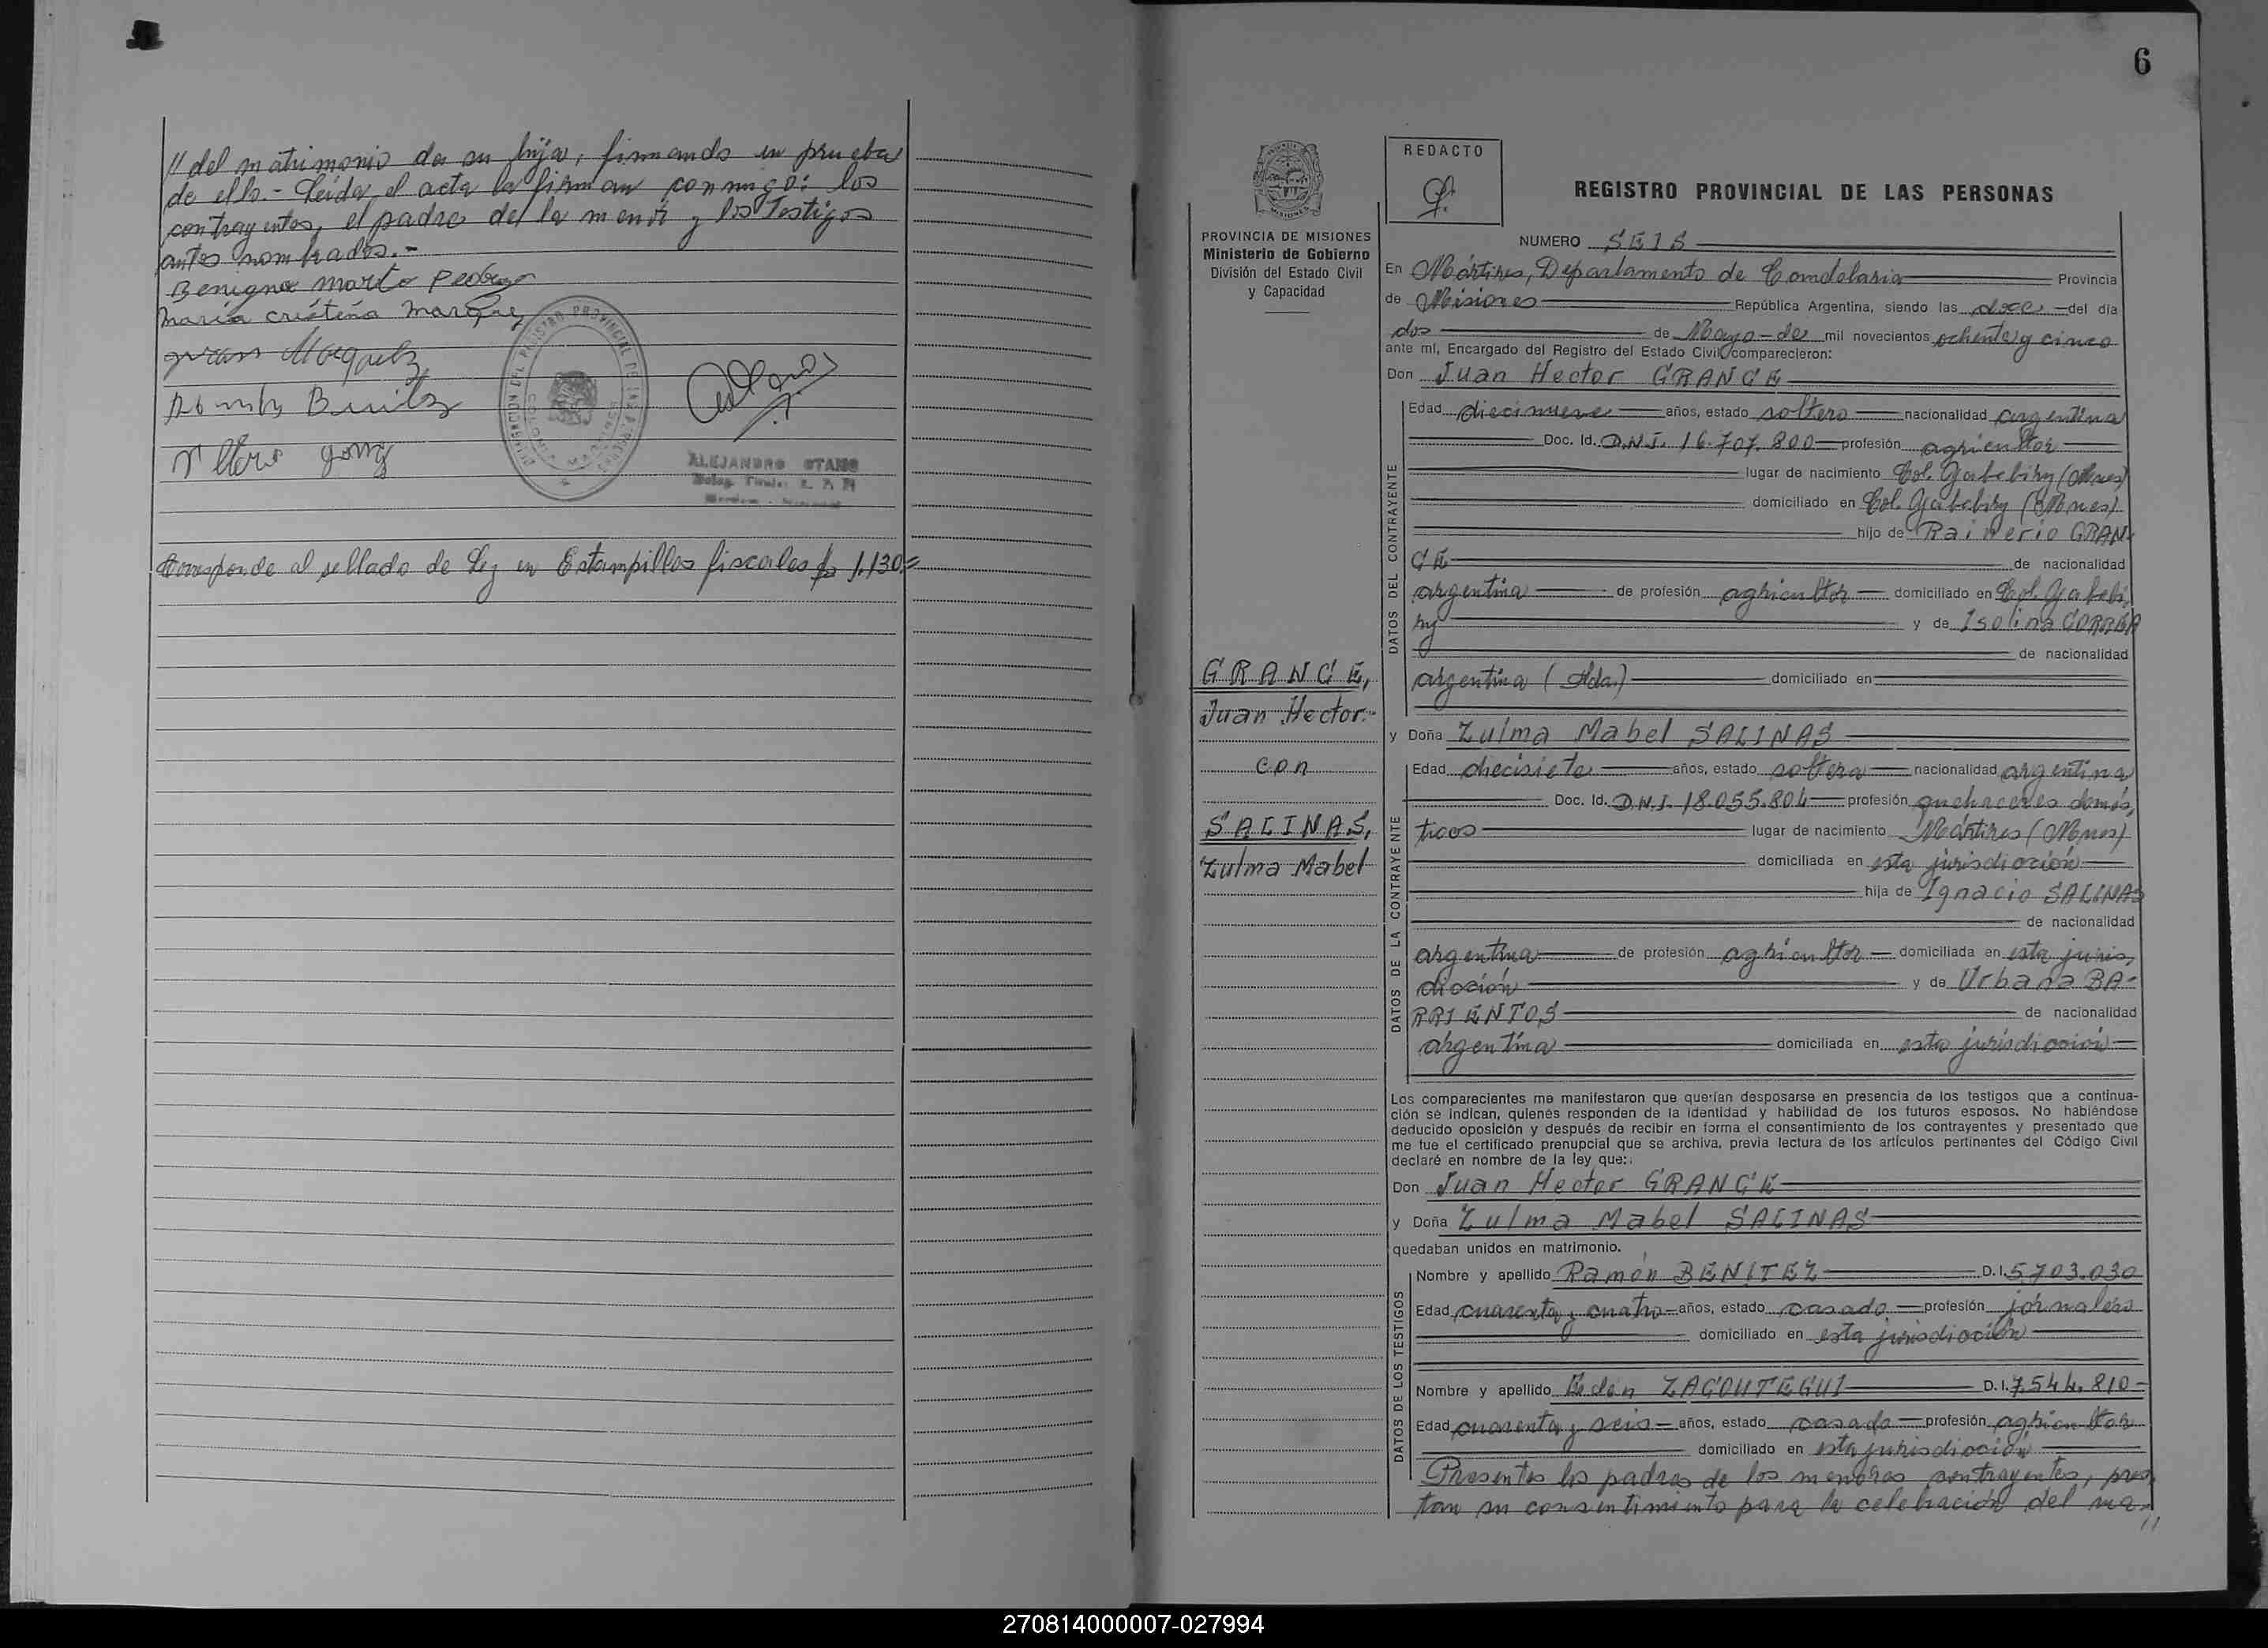 // del matrimonio de su hija, firmando en prueba
de ello.- Leída el acta la firman conmigo: los
contrayentes, el padre de la menor y los testigos
antes nombrados.-
Benigno
María cristina Marquez
Juan Marquez
Benitez
ALEJANDRO OTAÑO
Corresponde al sellado de Ley en Estampillas fiscales $a 1.130.=
6
PROVINCIA DE MISIONES
Ministerio de Gobierno
División del Estado Civil
y Capacidad
GRANCE,
Juan Hector.-
con
SALINAS,
Zulma Mabel
REDACTO
REGISTRO PROVINCIAL DE LAS PERSONAS
NUMERO SEIS
En Mártires, Departamento de Candelaria Provincia
de Misiones República Argentina, siendo las doce del día
dos de Mayo de mil novecientos ochenta y cinco
ante mí, Encargado del Registro del Estado Civil comparecieron:
Don Juan Hector GRANCE
DATOS DEL CONTRAYENTE
Edad diecinueve años, estado soltero nacionalidad argentina
Doc. Id. D.N.I. 16.707.800 profesión agricultor
lugar de nacimiento Col. Yabebiry (Mnes)
domiciliado en Col. Yabebiry (Mnes)
hijo de Rainerio GRAN-
CE de nacionalidad
argentina de profesión agricultor domiciliado en Col. Yabebi,
ry y de Isolina CORREA
de nacionalidad
argentina (fdda.) domiciliado en
y Doña Zulma Mabel SALINAS
DATOS DE LA CONTRAYENTE
Edad diecisiete años, estado soltera nacionalidad argentina
Doc. Id. D.N.I. 18.055.804 profesión quehaceres domés,
ticos lugar de nacimiento Mártires (Mnes)
domiciliada en esta jurisdicción
hija de Ignacio SALINAS
de nacionalidad
argentina de profesión agricultor domiciliada en esta juris,
dicción y de Urbana BA-
RRIENTOS de nacionalidad
argentina domiciliada en esta jurisdicción
Los comparecientes me manifestaron que querían desposarse en presencia de los testigos que a continua-
ción se indican, quienes responden de la identidad y habilidad de los futuros esposos. No habiéndose
deducido oposición y después de recibir en forma el consentimiento de los contrayentes y presentado que
me fue el certificado prenupcial que se archiva, previa lectura de los artículos pertinentes del Código Civil
declaré en nombre de la ley que:
Don Juan Hector GRANCE
y Doña Zulma Mabel SALINAS
quedaban unidos en matrimonio.
DATOS DE LOS TESTIGOS
Nombre y apellido Ramón BENITEZ D.I. 5.703.030
Edad cuarenta y cuatro años, estado casado profesión jornalero
domiciliado en esta jurisdicción
Nombre y apellido Eden ZAGOUTEGUI D.I. 7.544.810-
Edad cuarenta y seis años, estado casado profesión agricultor
domiciliado en esta jurisdicción
Presentes los padres de los menores contrayentes, pres,
tan su consentimiento para la celebración del ma,
//
270814000007-027994